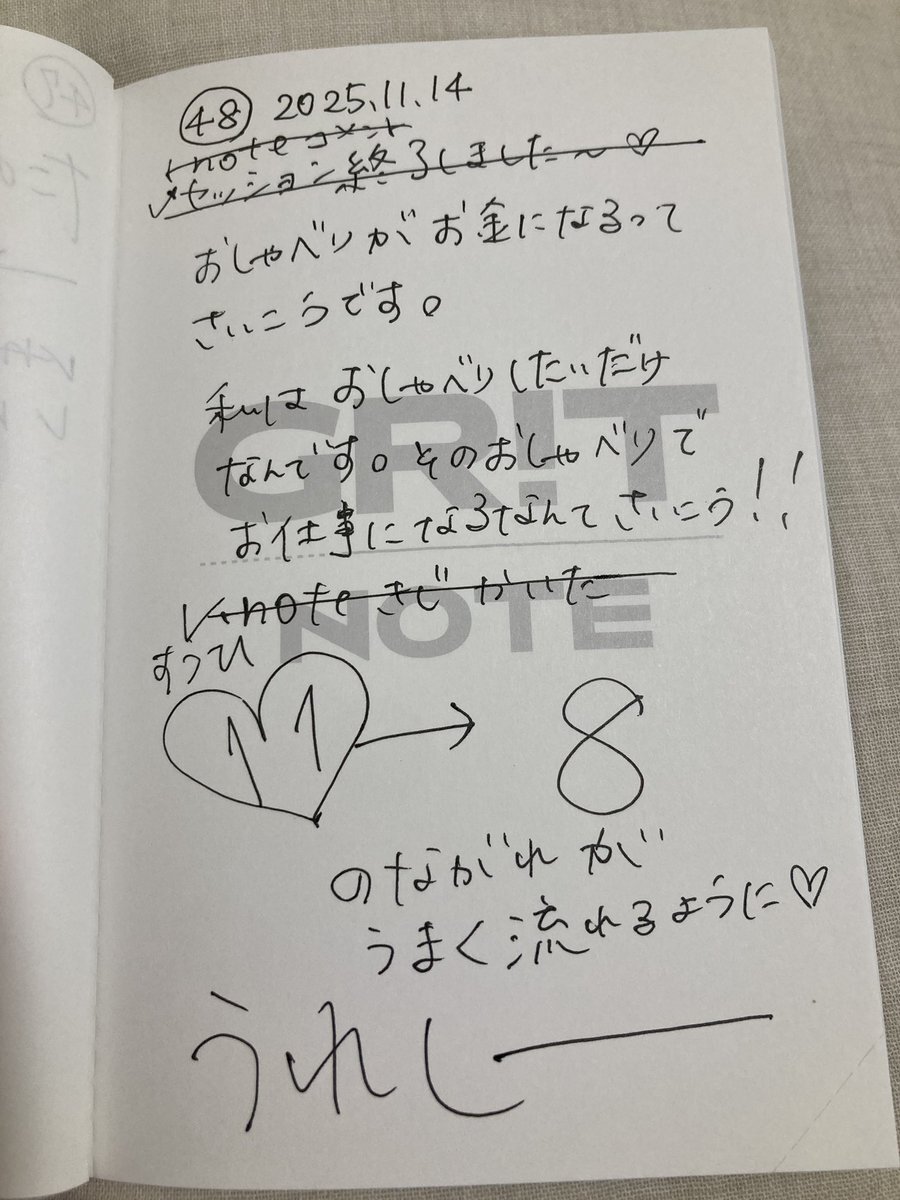 48 2025.11.14
note コメント
✓セッション終了しました〜♡
おしゃべりがお金になるって
さいこうです。
私はおしゃべりしたいだけ
なんです。そのおしゃべりで
お仕事になるなんてさいこう!!
GRIT
NOTE
note きじかいた
すうひ
11 → 8
のながれが
うまく流れるように♡
うれしー